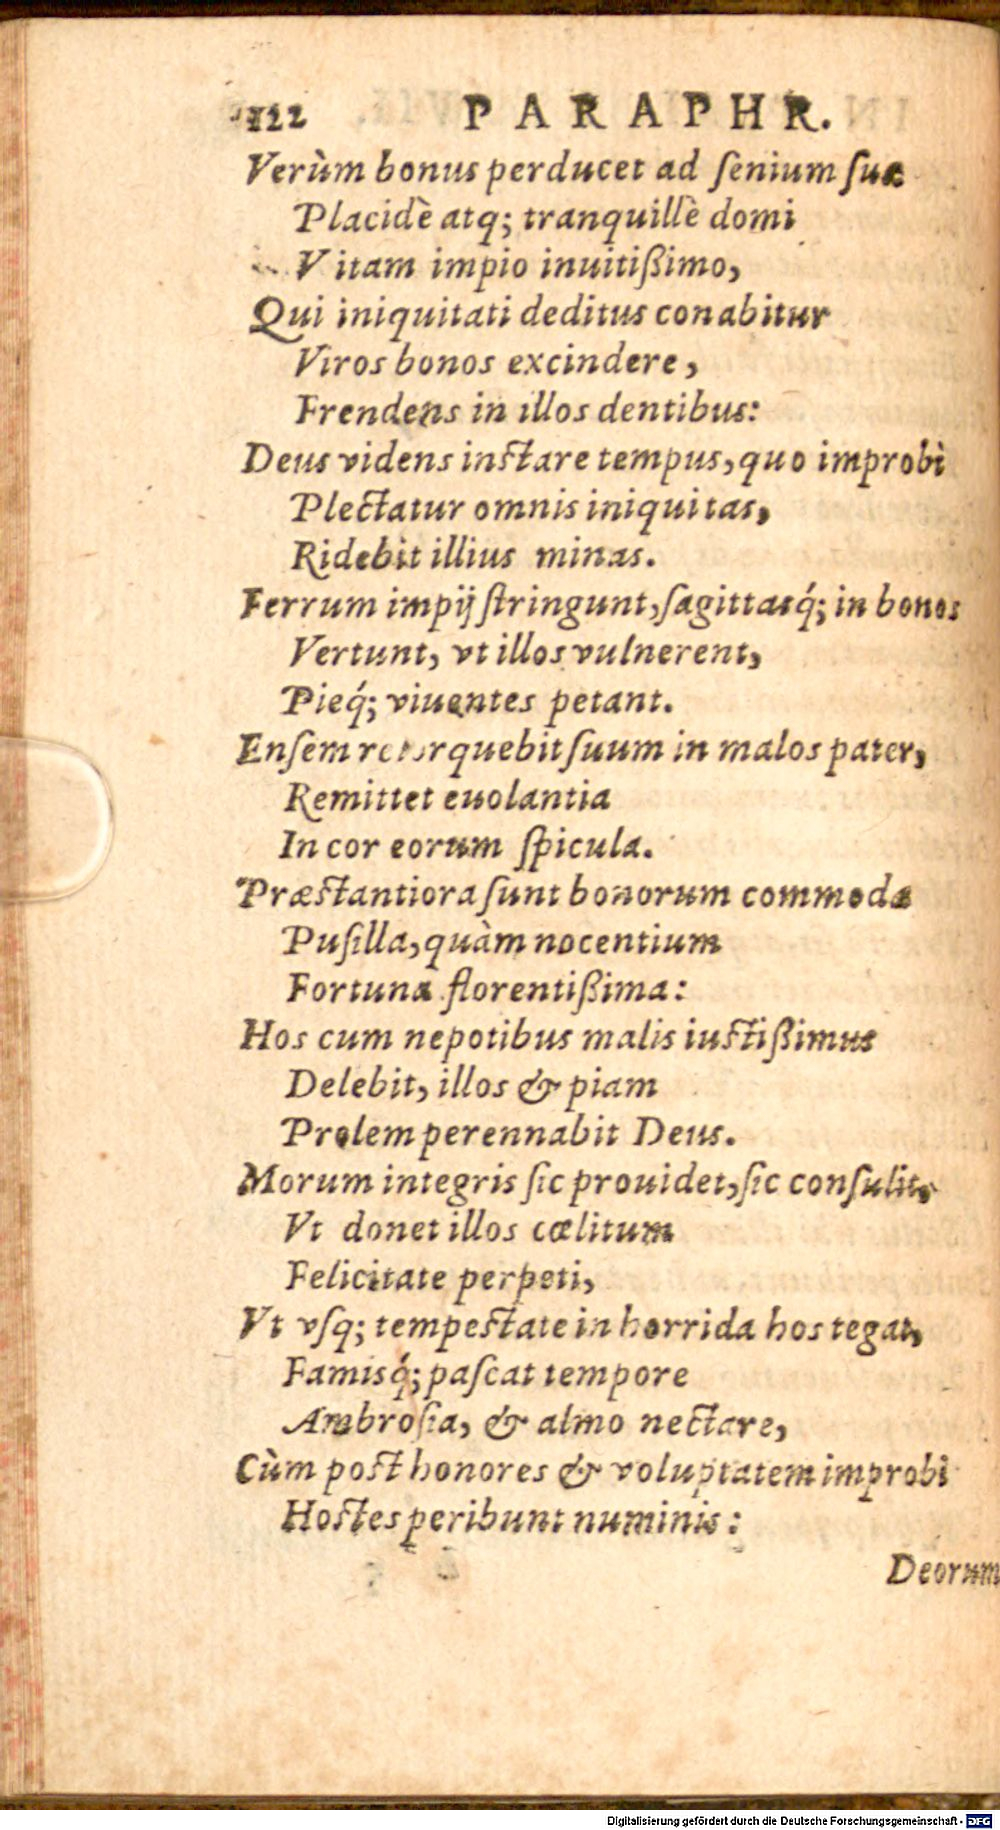 112 PARAPHR.
Verùm bonus perducet ad ſenium ſuæ
Placidè atq; tranquillè domi
Vitam impio inuitißimo,
Qui iniquitati deditus conabitur
Viros bonos excindere,
Frendens in illos dentibus:
Deus videns inſtare tempus, quo improbi
Plectatur omnis iniquitas,
Ridebit illius minas.
Ferrum impij ſtringunt, ſagittasq́; in bonos
Vertunt, vt illos vulnerent,
Pieq́; viuentes petant.
Enſem retorquebit ſuum in malos pater,
Remittet euolantia
In cor eorum ſpicula.
Præſtantiora ſunt bonorum commoda
Puſilla, quàm nocentium
Fortuna florentißima:
Hos cum nepotibus malis iuſtißimus
Delebit, illos & piam
Prolem perennabit Deus.
Morum integris ſic prouidet, ſic conſulit,
Vt donet illos cœlitum
Felicitate perpeti,
Vt vſq; tempeſtate in horrida hos tegat,
Famisq́; paſcat tempore
Ambroſia, & almo nectare,
Cùm poſt honores & voluptatem improbi
Hoſtes peribunt numinis:
Deorum
Digitalisierung gefördert durch die Deutsche Forschungsgemeinschaft - DFG